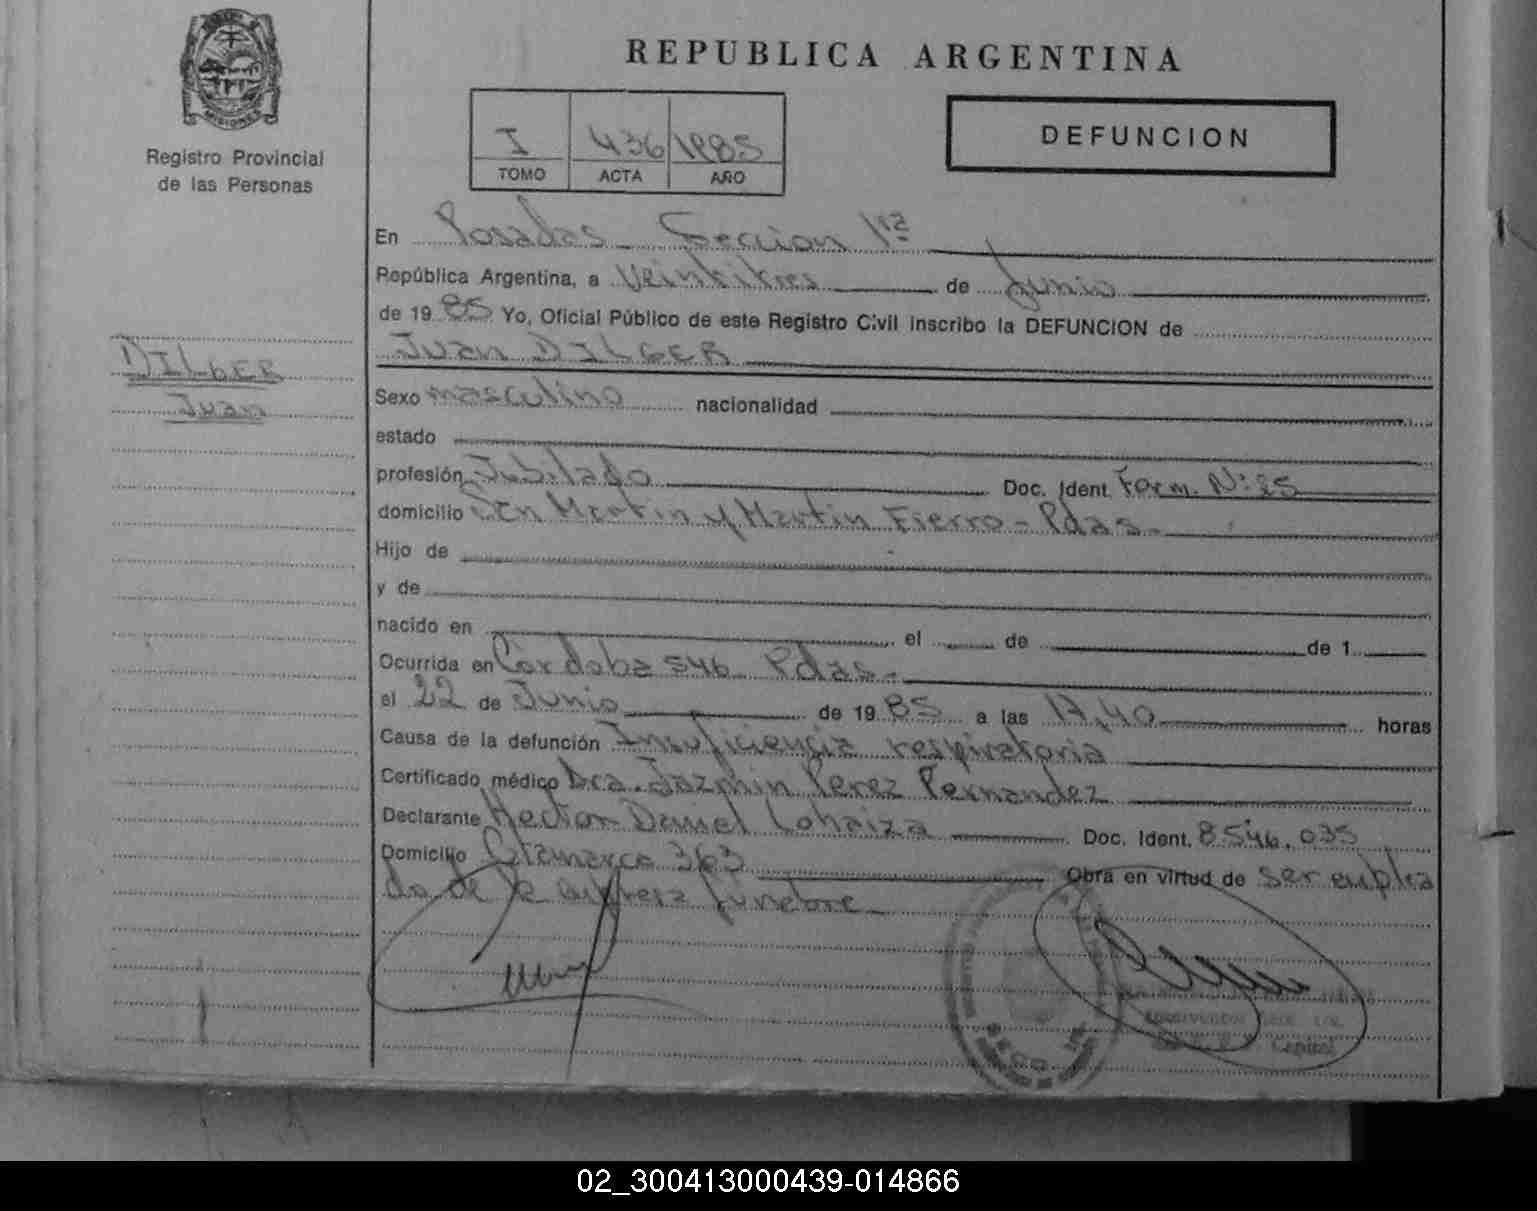 REPUBLICA ARGENTINA
MISIONES
Registro Provincial
de las Personas
I 436 1985
TOMO ACTA AÑO
DEFUNCION
En Posadas Seccion 1ra
República Argentina, a veintitres de Junio
de 1985 Yo, Oficial Público de este Registro Civil inscribo la DEFUNCION de
Juan DILGER
DILGER
Juan
Sexo masculino nacionalidad
estado
profesión Jubilado Doc. Ident. Form. Nº 25
domicilio San Martin y Martin Fierro - Pdas.
Hijo de
y de
nacido en el de de 1
Ocurrida en Córdoba 546 Pdas.
el 22 de Junio de 1985 a las 17,40 horas
Causa de la defunción Insuficiencia respiratoria
Certificado médico Dra. Jazmin Perez Fernandez
Declarante Hector Daniel Lohaiza Doc. Ident. 8.546.035
Domicilio Catamarca 363 Obra en virtud de ser emplea
do de la empresa funebre
Capital
02_300413000439-014866